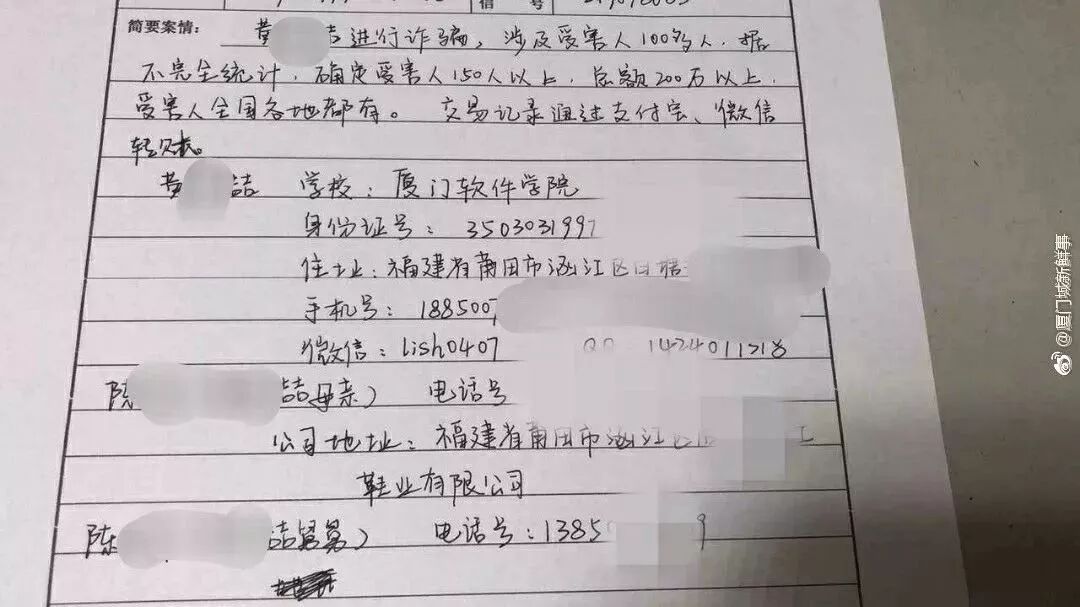 信 号
简要案情：黄 喆进行诈骗，涉及受害人100多人，据
不完全统计，确定受害人150人以上，总额200万以上，
受害人全国各地都有。交易记录通过支付宝、微信
转账。
黄 喆 学校：厦门软件学院
身份证号：3503031997
住址：福建省莆田市涵江区白塘
手机号：188500
微信：lish0407 QQ 1424011718
陈 喆母亲） 电话号
公司地址：福建省莆田市涵江区
鞋业有限公司
陈 喆舅舅） 电话号：1385 9
@厦门城新鲜事